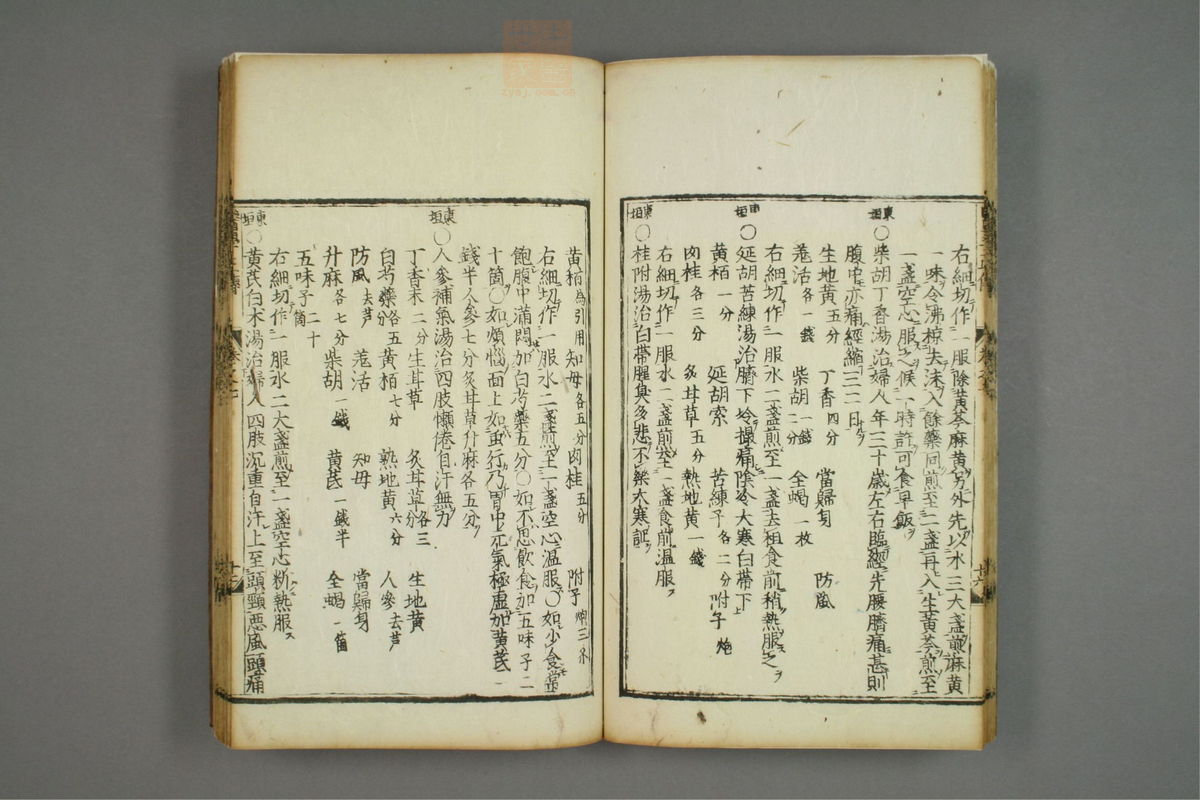 右細切作一服除黄芩麻黄另外先以水三大盞煎麻黄
一味令沸掠去沫入餘藥同煎至二盞再入生黄芩煎至
一盞空心服之候一時許可食早飯
東垣○柴胡丁香湯治婦人年三十歲左右臨經先腰臍痛甚則
腹中亦痛經縮三二日
生地黄五分 丁香四分 當歸身 防風
羗活各一錢 柴胡一錢二分 全蝎一枚
右細切作一服水二盞煎至一盞去粗食前稍熱服之
東垣○延胡苦練湯治臍下冷撮痛陰冷大寒白帶下
黄栢一分 延胡索 苦練子各二分 附子炮
肉桂各三分 炙甘草五分 熱地黄一錢
右細切作一服水二盞煎至一盞食前温服
東垣○桂附湯治白帶腥臭多悲不樂大寒証
黄栢為引用 知母各五分 肉桂五分 附子炮三
右細切作一服水二盞煎至一盞空心温服○如少食常
飽腹中滿悶加白芍藥五分○如不思飲食加五味子二
十箇○如煩惱面上如虫行乃胃中元氣極虚加黄芪一
錢半人參七分炙甘草升麻各五分
東垣○人參補氣湯治四肢懶倦自汗無力
丁香末二分 生甘草 炙甘草各三分 生地黄
白芍藥各五分 黄栢七分 熟地黄六分 人參去芦
防風去芦 羗活 知母 當歸身
升麻各七分 柴胡一錢 黄芪一錢半 全蝎一箇
五味子二十箇
右細切作一服水二大盞煎至一盞空心稍熱服
東垣○黄芪白朮湯治婦人四肢沉重自汗上至頭頸悪風頭痛